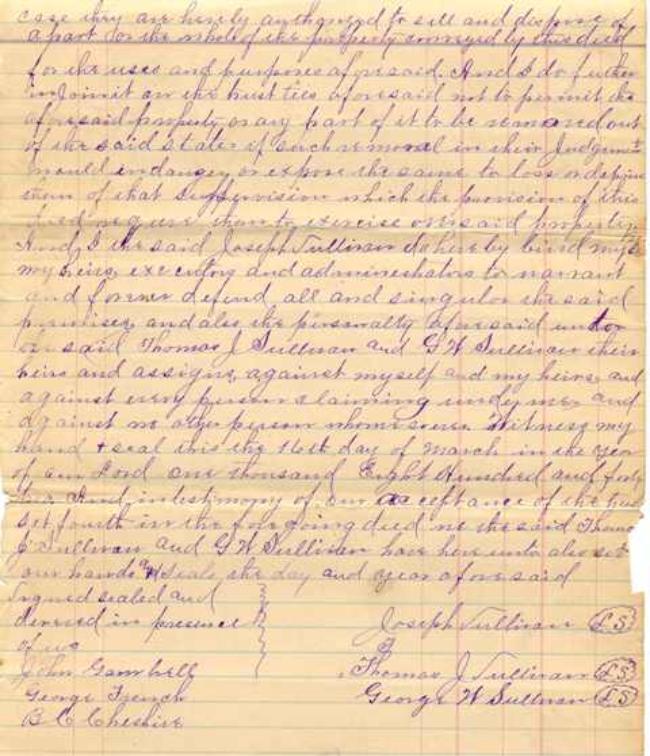 case they are hereby authorized to sell and dispose of
a part or the whole of the property conveyed by this died
for the uses and purposes aforesaid. And I do further
injoin it on the trustees aforesaid not to permit the
aforesaid property or any part of it to be removed out
of the said state if such removal in their Judgement
would indanger or expose the same to loss or deprive
them of that suppervision which the provision of this
deed require them to exercise over said property.
And I the said Joseph Sullivan do hereby bind myself
my heirs, executors and administrators to warrant
and forever defend, all and singular the said
premises, and also the personalty aforesaid unto
said Thomas J Sullivan and G W Sullivan their
heirs and assigns, against myself and my heirs, and
against every person claiming under me, and
against no other person whomsoever. Witness my
hand & seal this the 16th day of March in the year
of our Lord one thousand Eight Hundred and forty
And in testimony of our acceptance of the
set fourth in the forgoing died we the said Thomas
J Sullivan and G W Sullivan have here unto also set
our hands & seals the day and year afore said
Signed sealed and
delivered in presence
of us
Joseph Sullivan L S
John Gambrell
Thomas J Sullivan L S
George French
George W Sullivan L S
B C Cheshire